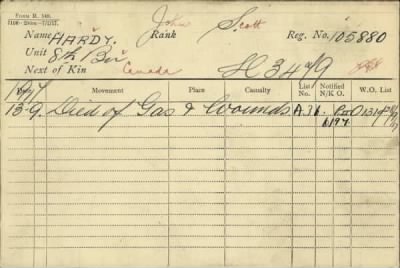 Form B. 149.
John Scott
Name HARDY. Rank Reg. No. 105880
Unit 8th Bn
Next of Kin Canada H 3479
Date Movement Place Casualty List No. Notified N/K O. W.O. List
1917
13-9. Died of Gas & Wounds. A.36.